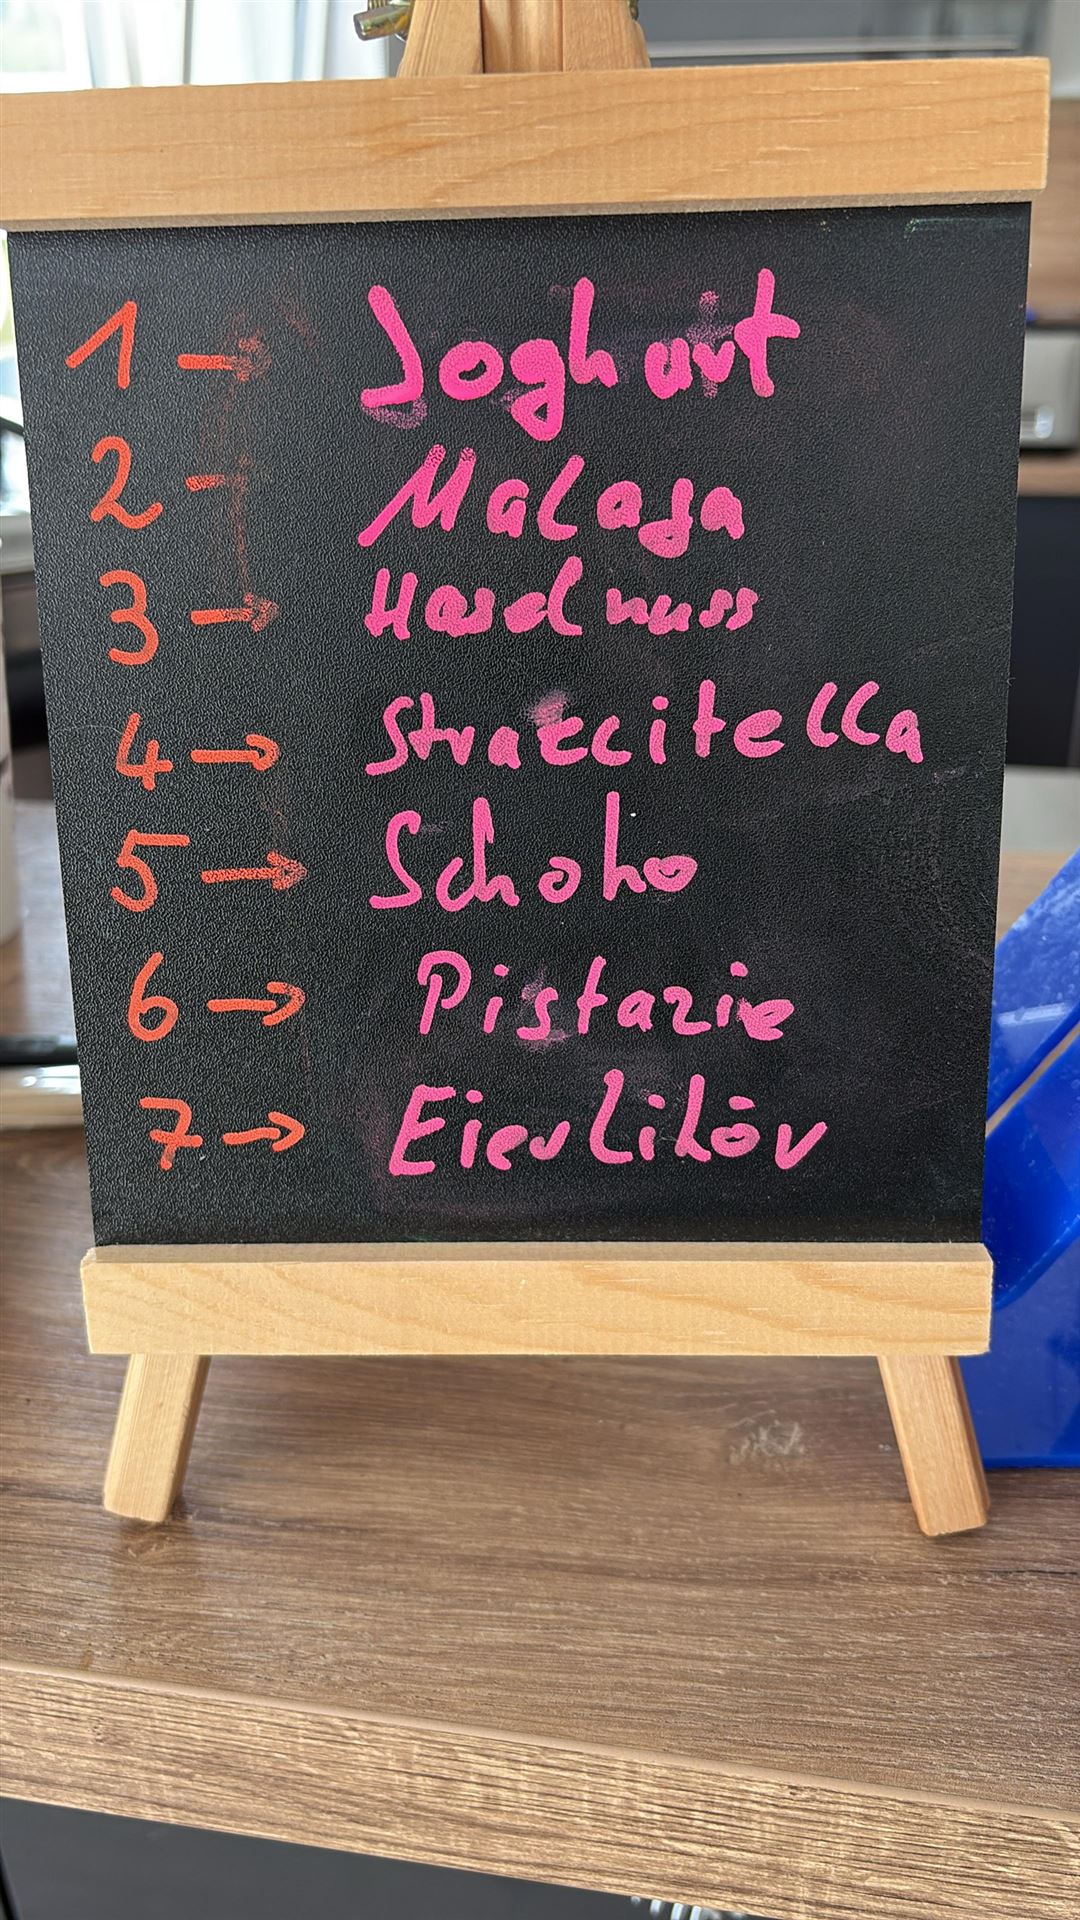 1 → Joghurt
2 → Malaga
3 → Haselnuss
4 → Stratcitella
5 → Schoko
6 → Pistazie
7 → Eierlikör